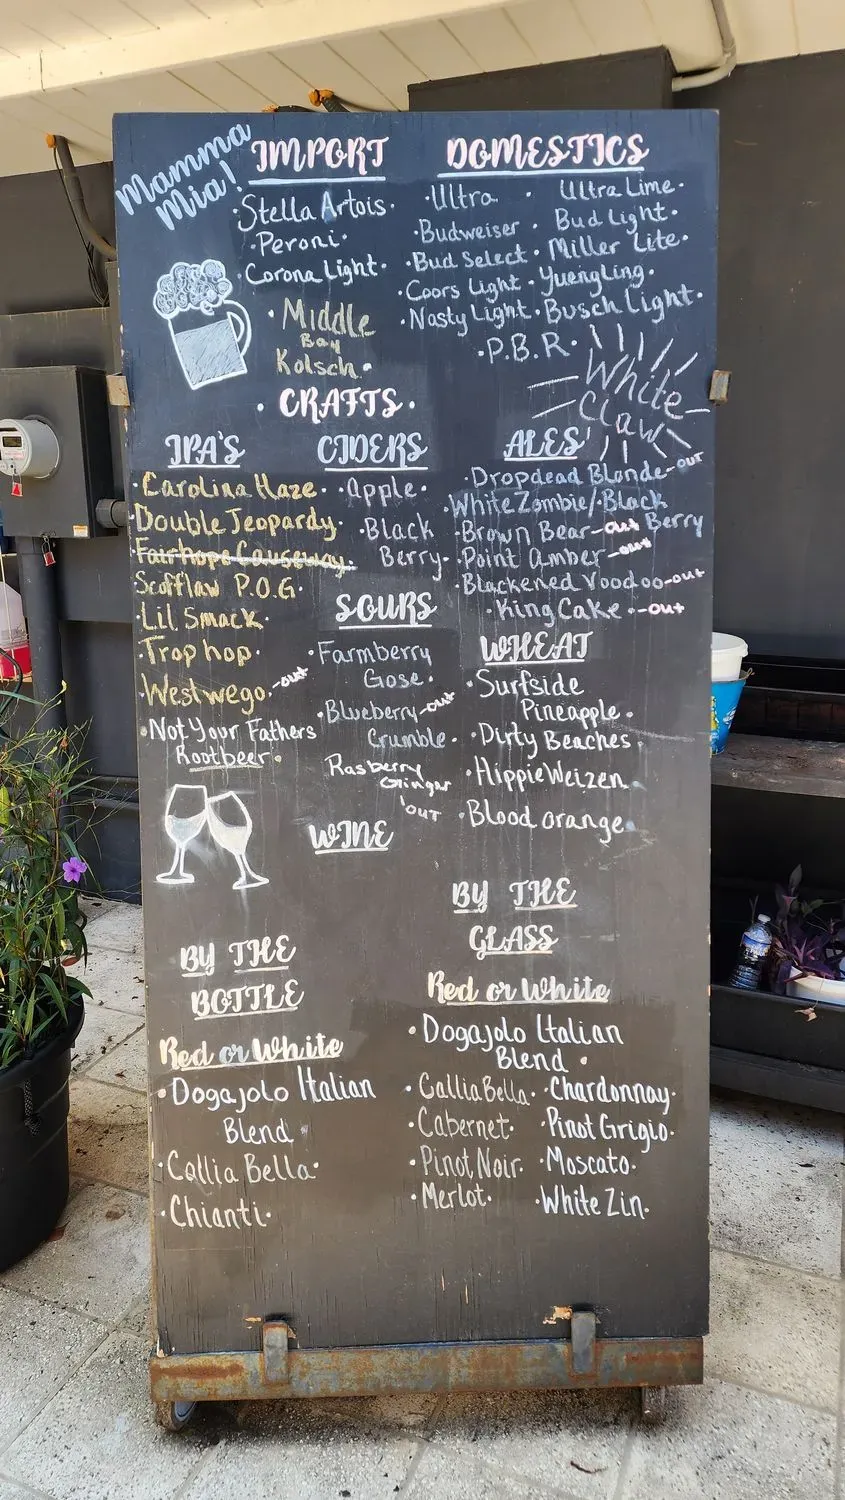 Mamma
Mia!
IMPORT
·Stella Artois·
·Peroni·
·Corona Light·
·Middle
Bay
Kolsch·
DOMESTICS
·Ultra
·Budweiser
·Bud Select
·Coors Light
·Nasty Light
·Ultra Lime·
·Bud Light·
·Miller Lite·
·Yuengling·
·Busch Light·
·P.B.R·
White
Claw
·CRAFTS·
IPA'S
·Carolina Haze·
·Double Jeopardy·
·Fairhope Causeway·
Scofflaw P.O.G·
·Lil Smack·
·Trop hop·
·Westwego·-out
·Not Your Fathers
Rootbeer·
CIDERS
·apple·
·Black
Berry·
SOURS
·Farmberry
Gose·
·Blueberry-out
Crumble·
Rasberry
Ginger
'OUT
ALES
·Dropdead Blonde-out
·White Zombie/Black
Berry
·Brown Bear-out
·Point amber-out
·Blackened Voodoo-out
·King Cake·-out
WHEAT
·Surfside
Pineapple·
·Dirty Beaches·
·HippieWeizen·
·Blood orange·
WINE
BY THE
BOTTLE
Red or White
·Dogajolo Italian
Blend
·Collia Bella·
·Chianti·
BY THE
GLASS
Red or White
·Dogajolo Italian
Blend·
·Callia Bella·
·Cabernet·
·Pinot Noir·
·Merlot·
·Chardonnay·
·Pinot Grigio·
·Moscato·
·White Zin·